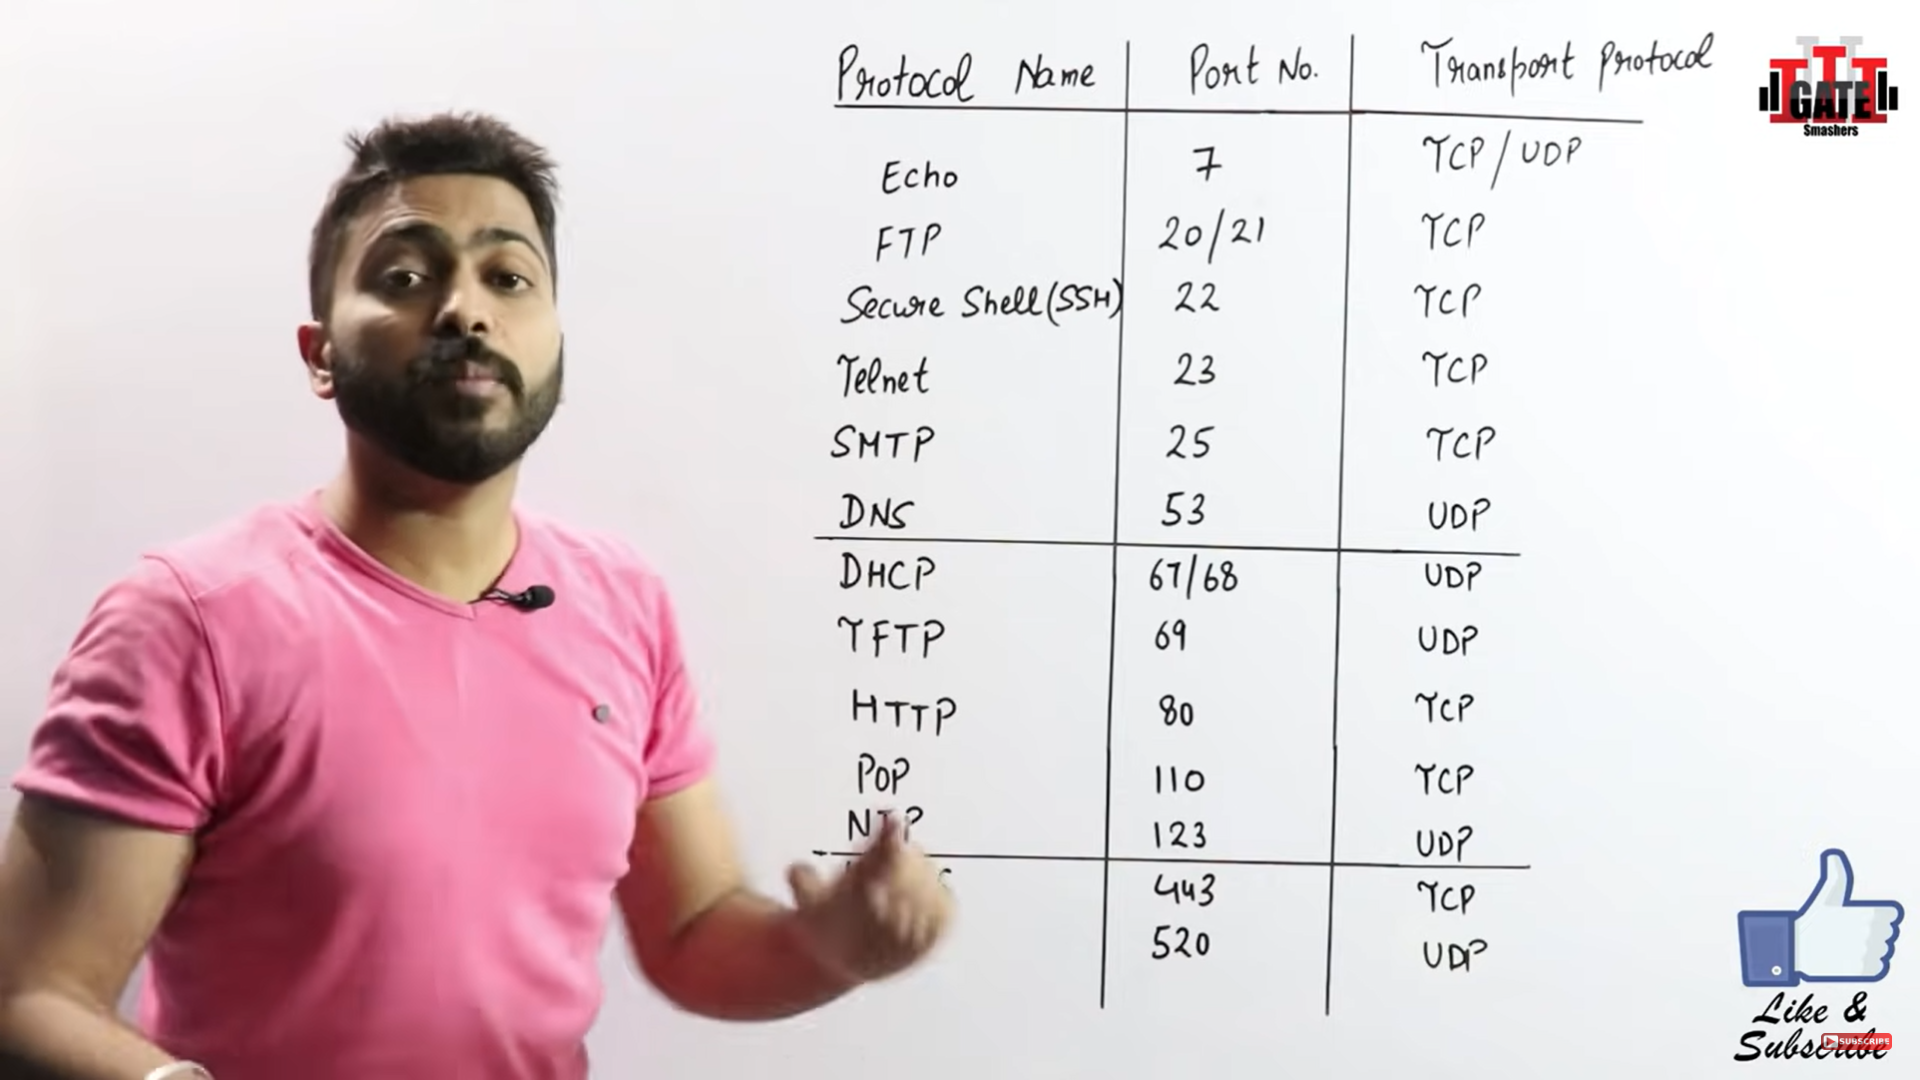 Protocol Name Port No. Transport Protocol
Echo 7 TCP/UDP
FTP 20/21 TCP
Secure Shell(SSH) 22 TCP
Telnet 23 TCP
SMTP 25 TCP
DNS 53 UDP
DHCP 67/68 UDP
TFTP 69 UDP
HTTP 80 TCP
POP 110 TCP
NTP 123 UDP
443 TCP
520 UDP
GATE
Smashers
Like &
Subscribe
SUBSCRIBE